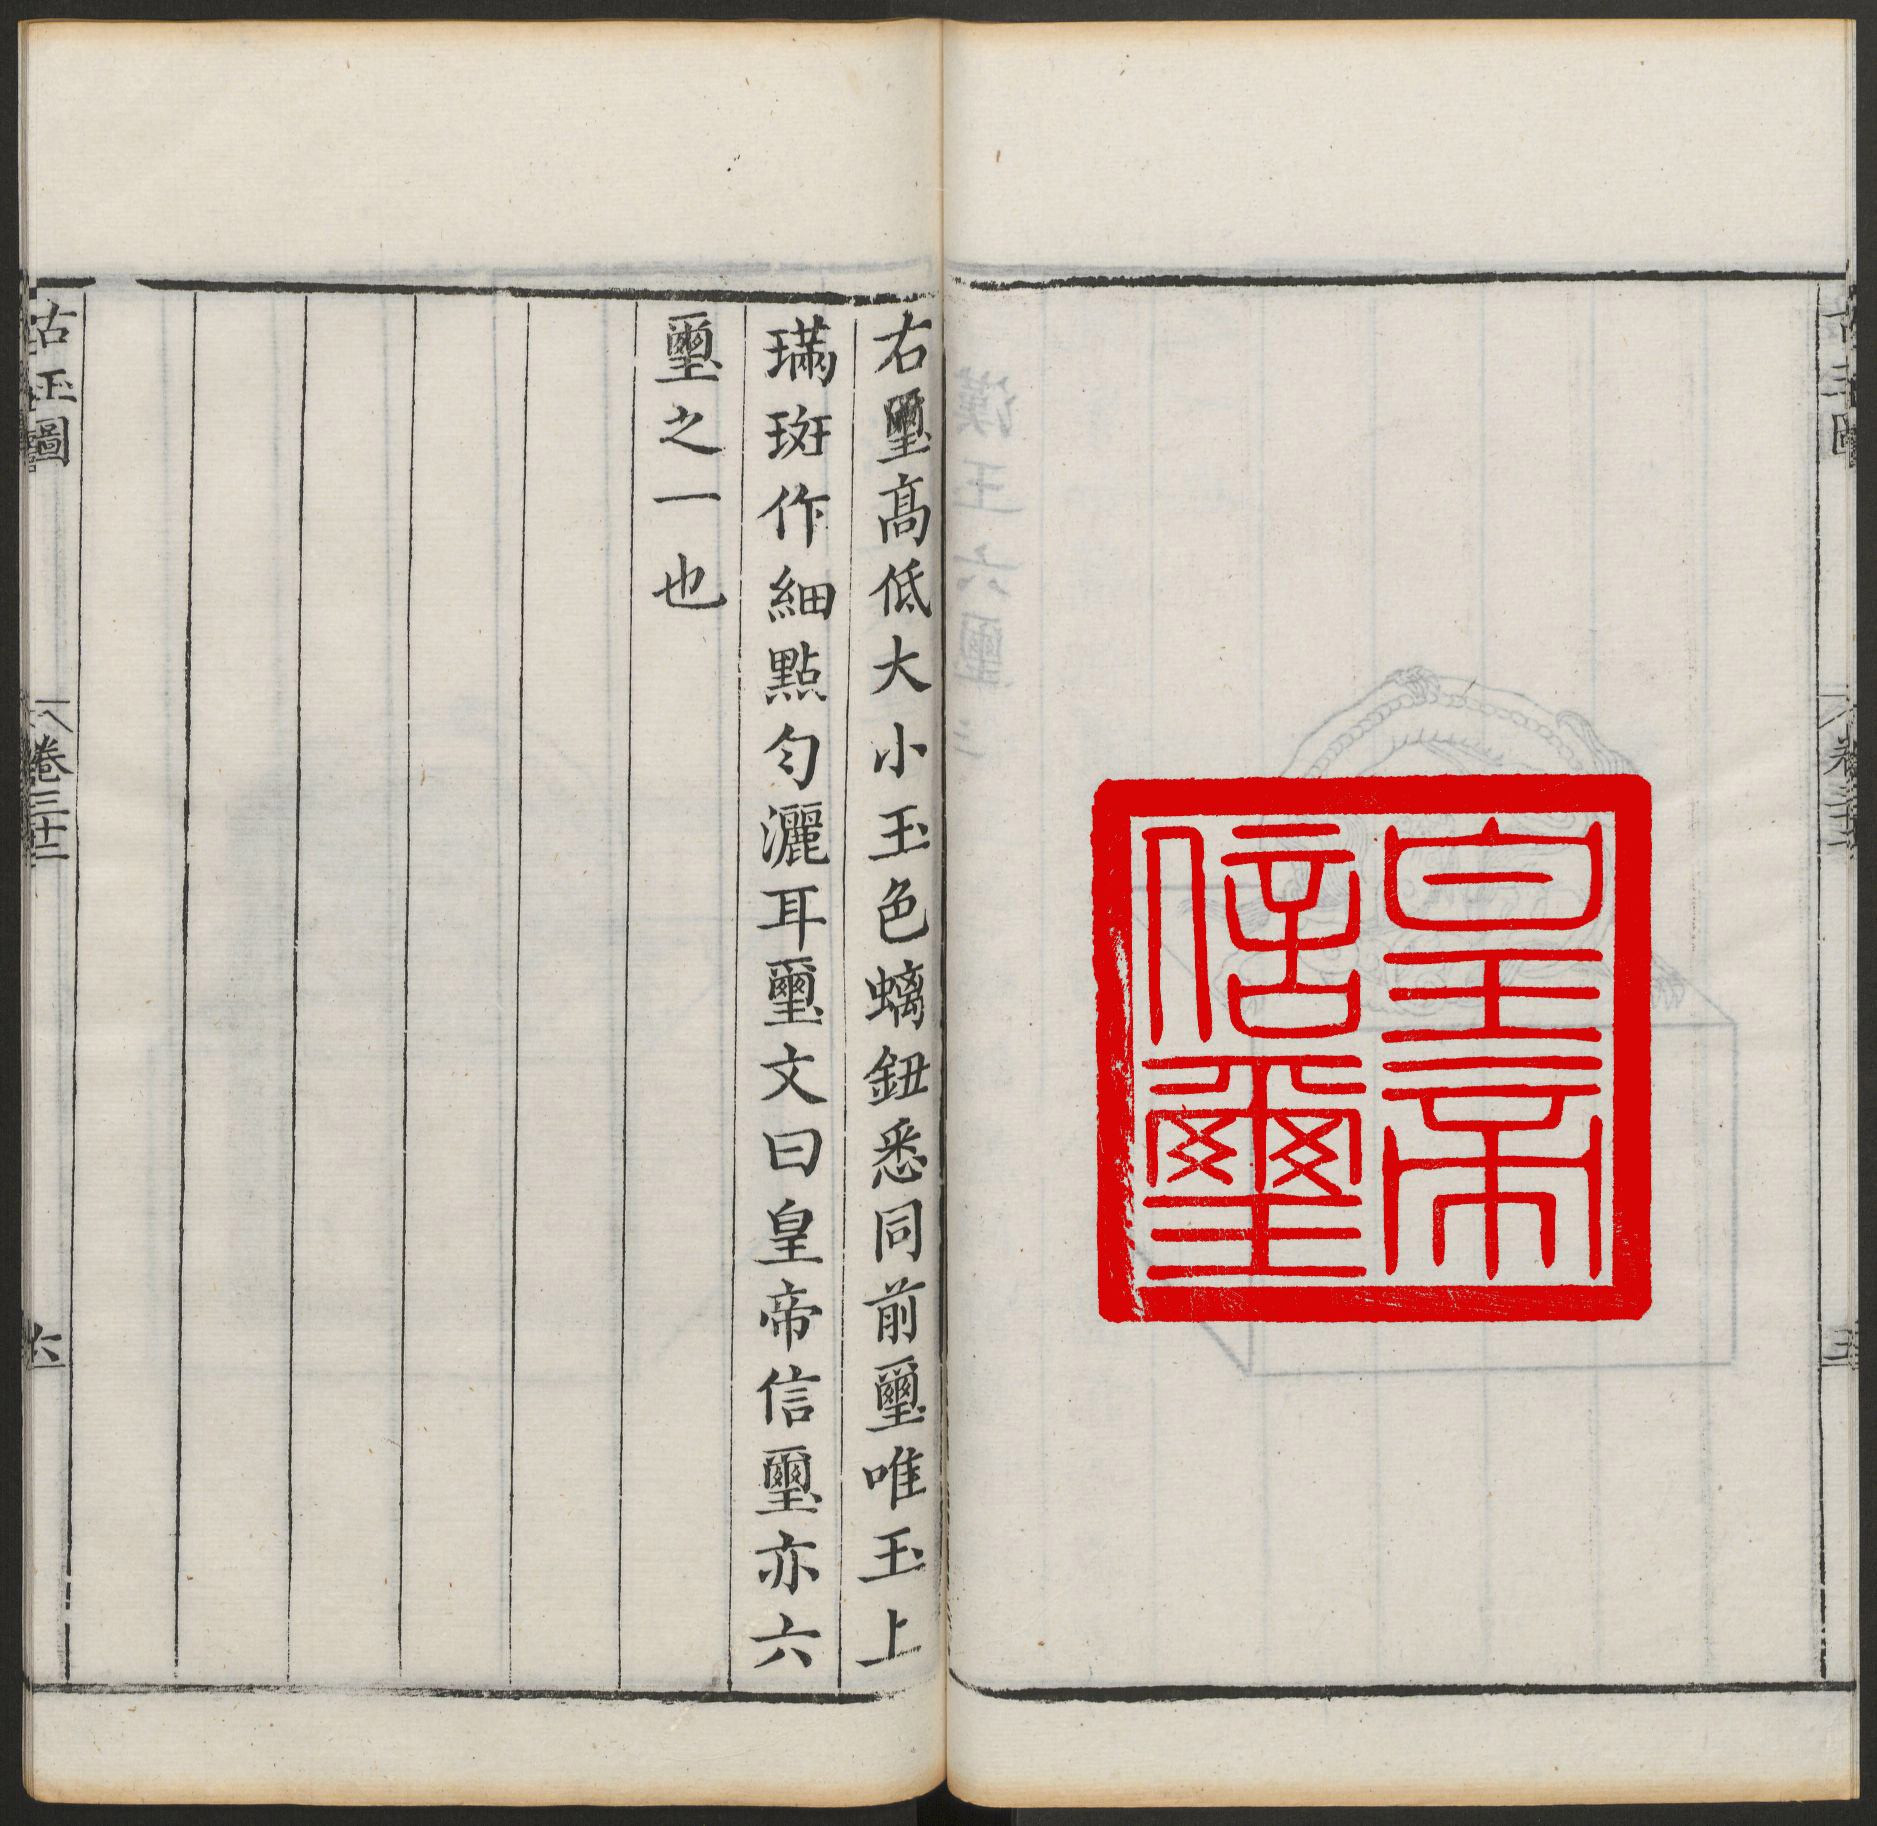 皇帝
信璽
右璽高低大小玉色螭鈕悉同前璽唯玉上
璊斑作細點勻灑耳璽文曰皇帝信璽亦六
璽之一也
古玉圖
卷三十二
六